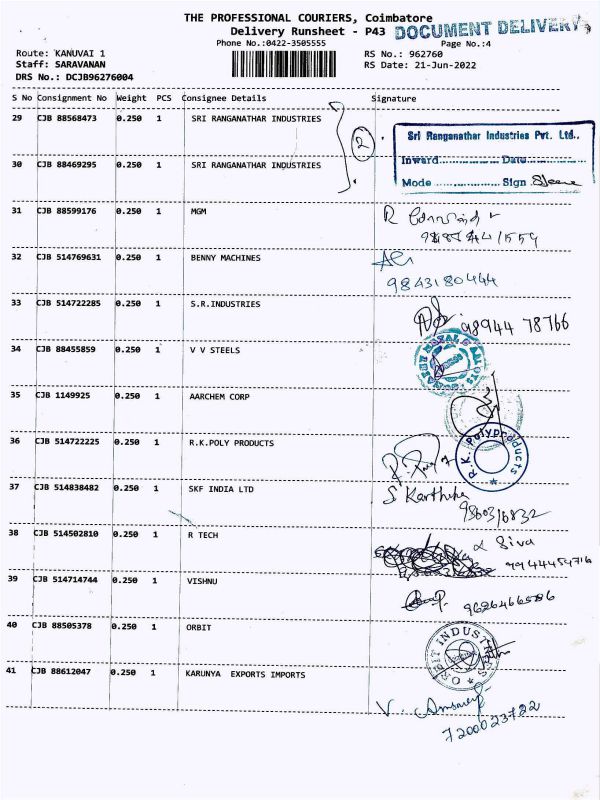 THE PROFESSIONAL COURIERS, Coimbatore
Delivery Runsheet - P43 DOCUMENT DELIVERY
Phone No.:0422-3505555 Page No.:4
Route: KANUVAI 1 RS No.: 962760
Staff: SARAVANAN RS Date: 21-Jun-2022
DRS No.: DCJB96276004
S No Consignment No Weight PCS Consignee Details Signature
29 CJB 88568473 0.250 1 SRI RANGANATHAR INDUSTRIES
2
Sri Ranganathar Industries Pvt. Ltd.,
Inward Date
Mode Sign
30 CJB 88469295 0.250 1 SRI RANGANATHAR INDUSTRIES
31 CJB 88599176 0.250 1 MGM
32 CJB 514769631 0.250 1 BENNY MACHINES
9843180444
33 CJB 514722285 0.250 1 S.R.INDUSTRIES
98944 78766
34 CJB 88455859 0.250 1 V V STEELS
35 CJB 1149925 0.250 1 AARCHEM CORP
36 CJB 514722225 0.250 1 R.K.POLY PRODUCTS
R.K. Polyproducts
37 CJB 514838482 0.250 1 SKF INDIA LTD
S Karthika
9860316832
38 CJB 514502810 0.250 1 R TECH
Siva
9944454716
39 CJB 514714744 0.250 1 VISHNU
40 CJB 88505378 0.250 1 ORBIT
ORBIT INDUSTRIES
41 CJB 88612047 0.250 1 KARUNYA EXPORTS IMPORTS
7200023722